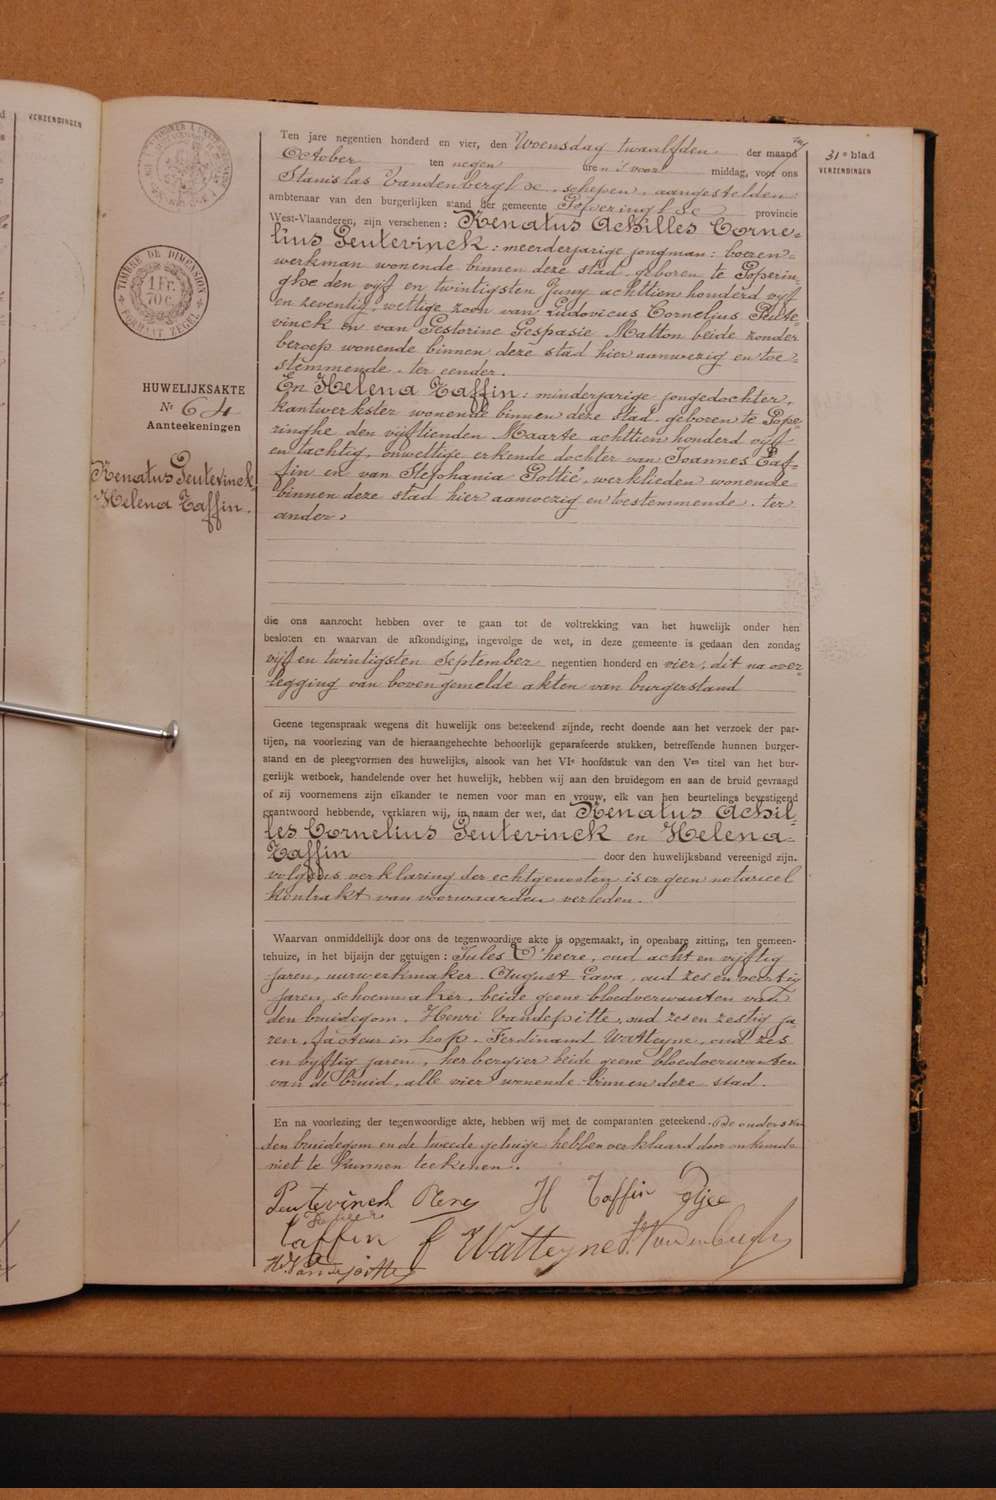 VERZENDINGEN
31e blad
VERZENDINGEN
TIMBRE DE DIMENSION
1 Fr.
70 c.
FORMAAT ZEGEL
HUWELIJKSAKTE
Nr 64
Aanteekeningen
Renatus Peutevinck
Helena Taffin.
Ten jare negentien honderd en vier, den Woensdag twaalfden der maand
October ten negen uren 's voor middag, voor ons
Stanislas Vandenberghe, schepen, aangestelden
ambtenaar van den burgerlijken stand der gemeente Poperinghe provincie
West-Vlaanderen, zijn verschenen: Renatus Achilles Corne=
lius Peutevinck: meerderjarige jongman: boeren=
werkman wonende binnen deze stad, geboren te Poperin=
ghe den vijf en twintigsten Juny achttien honderd vijf
en zeventig, wettige zoon van Ludovicus Cornelius Peute=
vinck en van Nestorine Gespasie Matton beide zonder
beroep wonende binnen deze stad hier aanwezig en toe=
stemmende. ter eender.
En Helena Taffin: minderjarige jongedochter,
kantwerkster wonende binnen deze stad, geboren te Pope=
ringhe den vijftienden Maarte achttien honderd vijf
en tachtig, onwettige erkende dochter van Joannes Taf=
fin en van Stephania Pottié, werklieden wonende
binnen deze stad hier aanwezig en toestemmende. ter
ander.
die ons aanzocht hebben over te gaan tot de voltrekking van het huwelijk onder hen
besloten en waarvan de afkondiging, ingevolge de wet, in deze gemeente is gedaan den zondag
vijf en twintigsten September negentien honderd en vier, dit na over=
legging van bovengemelde akten van burgerstand
Geene tegenspraak wegens dit huwelijk ons beteekend zijnde, recht doende aan het verzoek der par-
tijen, na voorlezing van de hieraangehechte behoorlijk geparafeerde stukken, betreffende hunnen burger-
stand en de pleegvormen des huwelijks, alsook van het VIe hoofdstuk van den Ven titel van het bur-
gerlijk wetboek, handelende over het huwelijk, hebben wij aan den bruidegom en aan de bruid gevraagd
of zij voornemens zijn elkander te nemen voor man en vrouw, elk van hen beurtelings bevestigend
geantwoord hebbende, verklaren wij, in naam der wet, dat Renatus Achil=
les Cornelius Peutevinck en Helena
Taffin door den huwelijksband vereenigd zijn.
volgens verklaring der echtgenooten is er geen notarieel
kontrakt van voorwaarden verleden.
Waarvan onmiddellijk door ons de tegenwoordige akte is opgemaakt, in openbare zitting, ten gemeen-
tehuize, in het bijzijn der getuigen: Jules D'heere, oud acht en vijftig
jaren, uurwerkmaker. August Lava, oud zes en veertig
jaren, schoenmaker. beide geene bloedverwanten van
den bruidegom. Henri Vandepitte, oud zes en zestig ja=
ren, facteur in hop. Ferdinand Watteyne, oud zes
en vyftig jaren, herbergier beide geene bloedverwanten
van de bruid, alle vier wonende binnen deze stad.
En na voorlezing der tegenwoordige akte, hebben wij met de comparanten geteekend. De ouders van
den bruidegom en de tweede getuige hebben verklaard door onkunde
niet te kunnen teekenen.
Peutevinck Rene H Taffin
Taffin
f Watteyne St Vandenberghe
H. Vandepitte